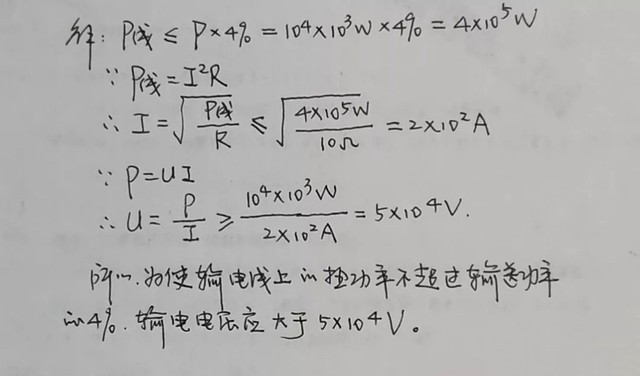 解: P线 ≤ P×4% = 10⁴×10³W×4% = 4×10⁵W
∵ P线 = I²R
∴ I = √(P线/R) ≤ √(4×10⁵W/10Ω) = 2×10²A
∵ P=UI
∴ U = P/I ≥ (10⁴×10³W)/(2×10²A) = 5×10⁴V.
所以,为使输电线上的损功率不超过输送功率
的4%,输电电压应大于5×10⁴V。